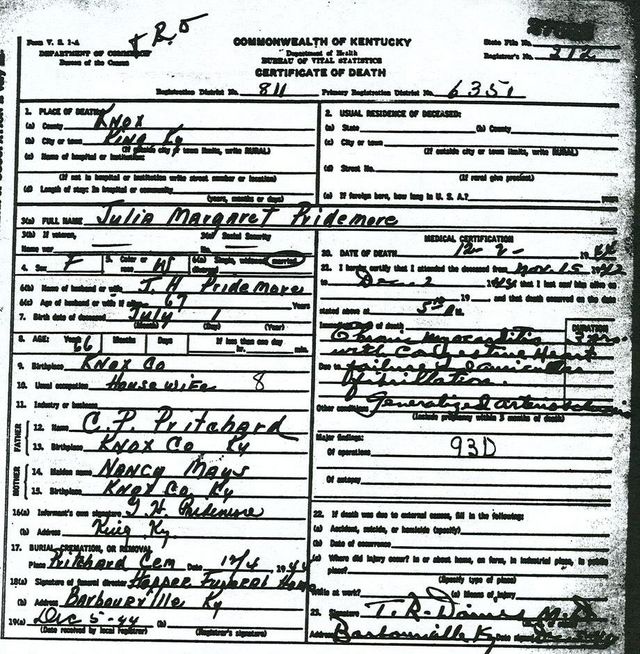 & R.O
Form V. S. 1-A
DEPARTMENT OF COMMERCE
Bureau of the Census
COMMONWEALTH OF KENTUCKY
Department of Health
BUREAU OF VITAL STATISTICS
CERTIFICATE OF DEATH
State File No.
Registrar's No. 212
Registration District No. 811 Primary Registration District No. 6351
1. PLACE OF DEATH:
(a) County Knox
(b) City or town King Ky
(If outside city or town limits, write RURAL)
(c) Name of hospital or institution:
(If not in hospital or institution write street number or location)
(d) Length of stay: In hospital or community
(years, months or days)
2. USUAL RESIDENCE OF DECEASED:
(a) State (b) County
(c) City or town
(If outside city or town limits, write RURAL)
(d) Street No.
(If rural give precinct)
(e) If foreign born, how long in U. S. A.? years
3(a) FULL NAME Julia Margaret Pridemore
3(b) If veteran,
Name war —
3(c) Social Security
No. —
4. Sex F 5. Color or race W 6(a) Single, widowed, married, divorced
6(b) Name of husband or wife J. H Pridemore
6(c) Age of husband or wife if alive 67 Years
7. Birth date of deceased July 1
(Month) (Day) (Year)
8. AGE: Years 66 Months Days If less than one day
hr. min.
9. Birthplace Knox Co
10. Usual occupation Housewife 8
11. Industry or business
FATHER
12. Name C. P. Pritchard
13. Birthplace Knox Co Ky
MOTHER
14. Maiden name Nancy Mays
15. Birthplace Knox Co, Ky
16(a) Informant's own signature J. H. Pridemore
(b) Address King Ky
17. BURIAL, CREMATION, OR REMOVAL
Place Pritchard Cem Date 12/4 1944
18(a) Signature of funeral director Hopper Funeral Home
(b) Address Barbourville Ky
19(a) Dec 5-44 (b)
(Date received by local registrar) (Registrar's signature)
MEDICAL CERTIFICATION
20. DATE OF DEATH 12-2- 1944
21. I hereby certify that I attended the deceased from Nov. 15 1942
to Dec. 2 1944, that I last saw h alive on
19 and that death occurred on the date
stated above at
Immediate cause of death DURATION
Chronic myocarditis 3 yrs.
with Congestive Heart
Due to failure & auricular
fibrillation.
Other conditions Generalized arteriosclerosis
(Include pregnancy within 3 months of death)
Major findings:
Of operations 93D
Of autopsy
22. If death was due to external causes, fill in the following:
(a) Accident, suicide, or homicide (specify)
(b) Date of occurrence
(c) Where did injury occur? in or about home, on farm, in industrial place, in public
place?
(Specify type of place)
While at work? (e) Means of injury
23. Signature T. R. Davies M.D.
Address Barbourville Ky Date signed